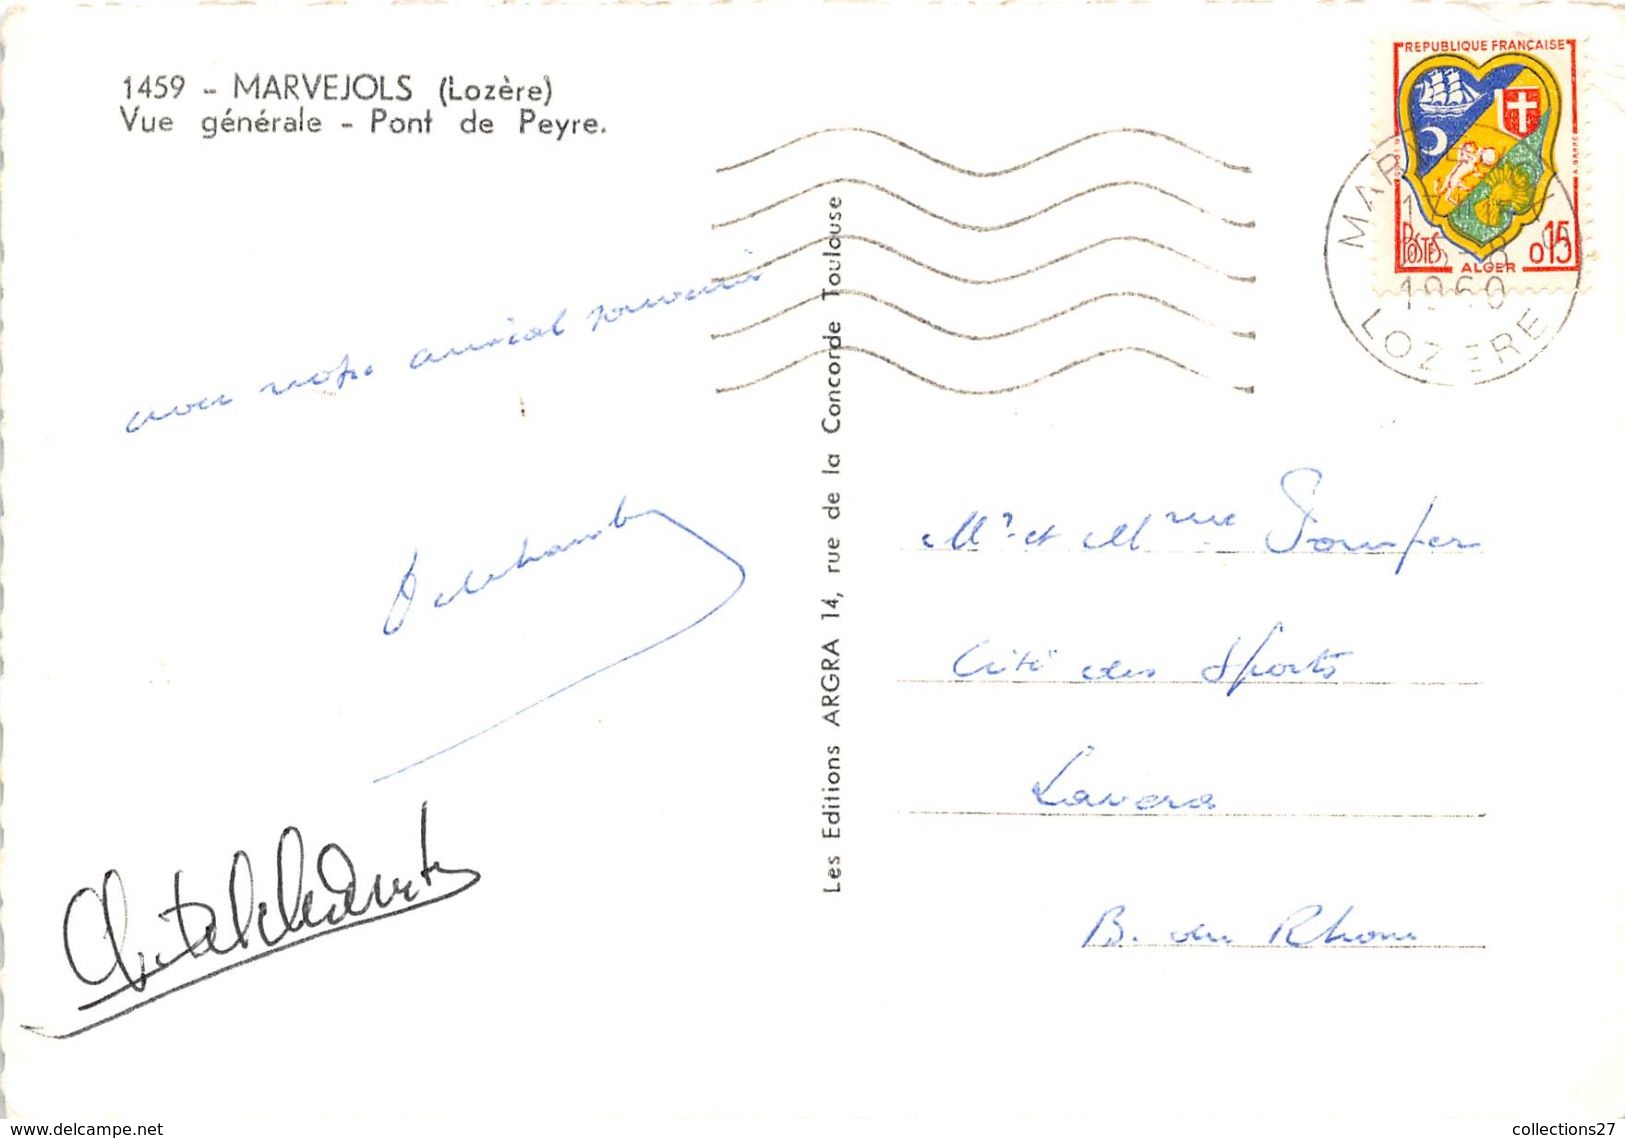 1459 - MARVEJOLS (Lozère)
Vue générale - Pont de Peyre.
REPUBLIQUE FRANÇAISE
POSTES
ALGER
0,15
1960
LOZERE
avec notre amical souvenir
Les Editions ARGRA 14, rue de la Concorde Toulouse
Mr et Mme
Cité des Sports
Lavera
B. du Rhone
www.delcampe.net
collections27